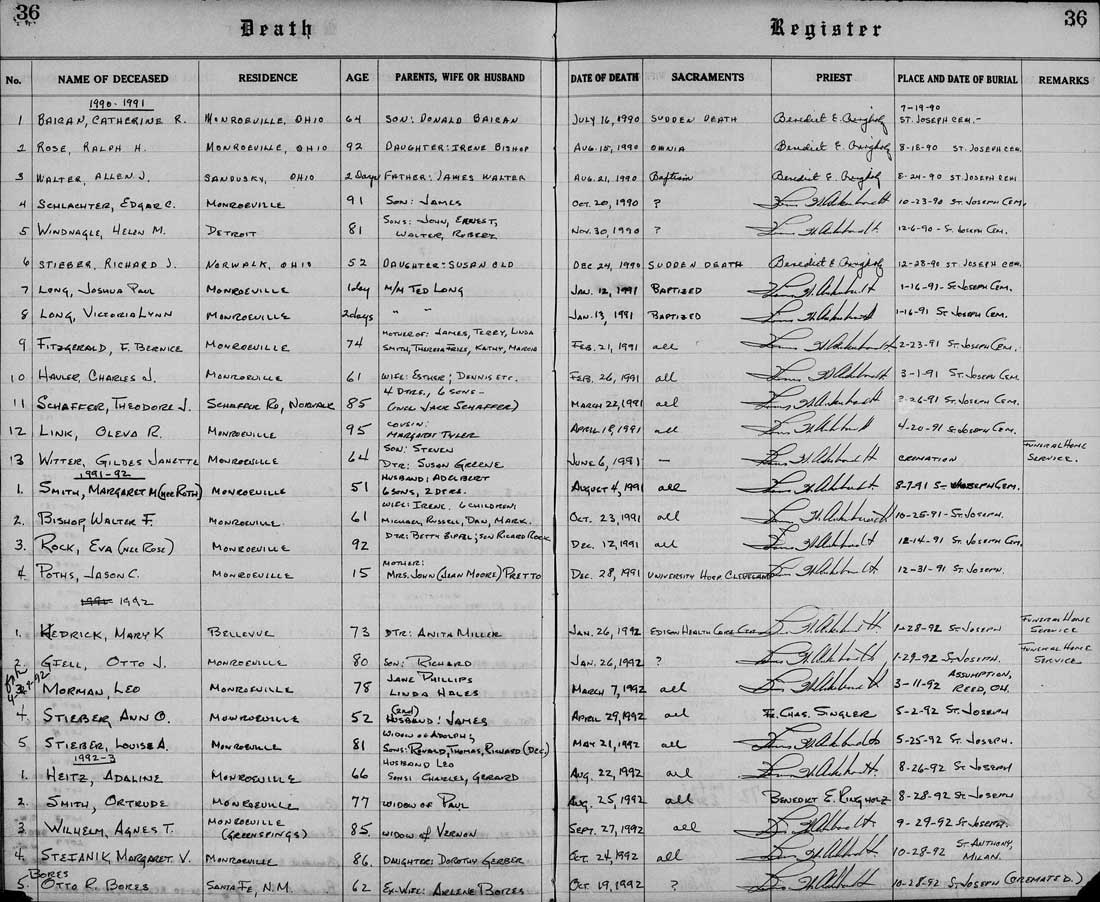 36 Death Register 36
No. NAME OF DECEASED RESIDENCE AGE PARENTS, WIFE OR HUSBAND DATE OF DEATH SACRAMENTS PRIEST PLACE AND DATE OF BURIAL REMARKS
1990-1991
7-19-90
1 BAIRAN, CATHERINE R. MONROEVILLE, OHIO 64 SON: DONALD BAIRAN JULY 16, 1990 SUDDEN DEATH Benedict E. ST. JOSEPH CEM.-
2 ROSE, RALPH H. MONROEVILLE, OHIO 92 DAUGHTER: IRENE BISHOP AUG. 15, 1990 OMNIA Benedict E. 8-18-90 ST. JOSEPH CEM.
3 WALTER, ALLEN J. SANDUSKY, OHIO 2 Days FATHER: JAMES WALTER AUG. 21, 1990 Baptism Benedict E. 8-24-90 ST JOSEPH CEM
4 SCHLACHTER, EDGAR C. MONROEVILLE 91 SON: JAMES OCT. 20, 1990 ? 10-23-90 ST. JOSEPH CEM.
SONS: JOHN, ERNEST,
5 WINDNAGLE, HELEN M. DETROIT 81 WALTER, ROBERT NOV. 30, 1990 ? 12-6-90 - ST. JOSEPH CEM.
6 STIEBER, RICHARD J. NORWALK, OHIO 52 DAUGHTER: SUSAN OLD DEC 24, 1990 SUDDEN DEATH Benedict E. 12-28-90 ST. JOSEPH CEM.
7 LONG, JOSHUA PAUL MONROEVILLE 1 day M/M TED LONG JAN. 12, 1991 BAPTIZED 1-16-91- ST JOSEPH CEM.
8 LONG, VICTORIA LYNN MONROEVILLE 2 days " " JAN. 13, 1991 BAPTIZED 1-16-91 ST JOSEPH CEM.
MOTHER OF: JAMES, TERRY, LINDA
9 FITZGERALD, F. BERNICE MONROEVILLE 74 SMITH, THERESA FRIES, KATHY, MARCIA FEB. 21, 1991 all 2-23-91 ST. JOSEPH CEM.
10 HAULER, CHARLES J. MONROEVILLE 61 WIFE: ESTHER; DENNIS ETC. FEB. 26, 1991 all 3-1-91 ST. JOSEPH CEM.
4 DTRS., 6 SONS -
11 SCHAFFER, THEODORE J. SCHAFFER RD, NORWALK 85 (INCL JACK SCHAFFER) MARCH 22, 1991 all 3-26-91 ST. JOSEPH CEM.
COUSIN:
12 LINK, OLEVA R. MONROEVILLE 95 MARGARET TYLER APRIL 18, 1991 all 4-20-91 ST. JOSEPH CEM.
SON: STEVEN FUNERAL HOME
13 WITTER, GILDES JANETTE MONROEVILLE 64 DTR: SUSAN GREENE JUNE 6, 1991 — CREMATION SERVICE.
1991-92 HUSBAND: ADELBERT
1. SMITH, MARGARET M (NEE ROTH) MONROEVILLE 51 6 SONS, 2 DTRS. AUGUST 4, 1991 all 8-7-91 ST. JOSEPH CEM.
WIFE: IRENE. 6 CHILDREN:
2. BISHOP, WALTER F. MONROEVILLE 61 MICHAEL, RUSSELL, DAN, MARK. OCT. 23, 1991 all 10-25-91- ST. JOSEPH.
3. ROCK, EVA (NEE ROSE) MONROEVILLE 92 DTR: BETTY ZIPFEL; SON RICARD ROCK DEC. 12, 1991 all 12-14-91 ST. JOSEPH CEM.
MOTHER:
4. POTHS, JASON C. MONROEVILLE 15 MRS. JOHN (JEAN MOORE) PRETTO DEC. 28, 1991 UNIVERSITY HOSP. CLEVELAND 12-31-91 ST. JOSEPH.
1992
FUNERAL HOME
1. HEDRICK, MARY K BELLEVUE 73 DTR: ANITA MILLER JAN. 26, 1992 EDISON HEALTH CARE CEN 1-28-92 ST JOSEPH SERVICE
FUNERAL HOME
2. GFELL, OTTO J. MONROEVILLE 80 SON: RICHARD JAN. 26, 1992 ? 1-29-92 ST. JOSEPH. SERVICE
JANE PHILLIPS ASSUMPTION,
3. MORMAN, LEO MONROEVILLE 78 LINDA HALES MARCH 7, 1992 all 3-11-92 REED, OH.
4. STIEBER, ANN O. MONROEVILLE 52 HUSBAND: JAMES APRIL 29, 1992 all FR. CHAS. SINGLER 5-2-92 ST. JOSEPH
WIDOW OF ADOLPH;
5. STIEBER, LOUISE A. MONROEVILLE 81 SONS: RONALD, THOMAS, RICHARD (DEC.) MAY 21, 1992 all 5-25-92 ST. JOSEPH.
1992-3 HUSBAND LEO
1. HEITZ, ADALINE MONROEVILLE 66 SONS: CHARLES, GERARD AUG. 22, 1992 all 8-26-92 ST JOSEPH
2. SMITH, ORTRUDE MONROEVILLE 77 WIDOW OF PAUL AUG. 25, 1992 all BENEDICT E. RINGHOLZ 8-28-92 ST. JOSEPH
MONROEVILLE
3. WILHELM, AGNES T. (GREENSPINGS) 85 WIDOW of VERNON SEPT. 27, 1992 all 9-29-92 ST. JOSEPH.
ST. ANTHONY,
4. STEFANIK, MARGARET V. MONROEVILLE 86. DAUGHTER: DOROTHY GERBER OCT. 24, 1992 all 10-28-92 MILAN.
BORES
5. OTTO R. BORES SANTA FE, N.M. 62 EX-WIFE: ARLENE BORES OCT 19, 1992 ? 10-28-92 ST JOSEPH (CREMATED.)